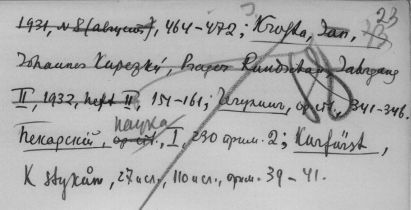 23
1931, № 8 (август), 464-472; Krofta, Jan,
Johannes Karezký, Prager Rundschau, Jahrgang
II, 1932, heft II, 151-161; op. cit., 341-346.
Пекарскій, наука, I, 230 прим. 2; Kurfürst,
K 27 и сл., 110 и сл., прим. 39-41.